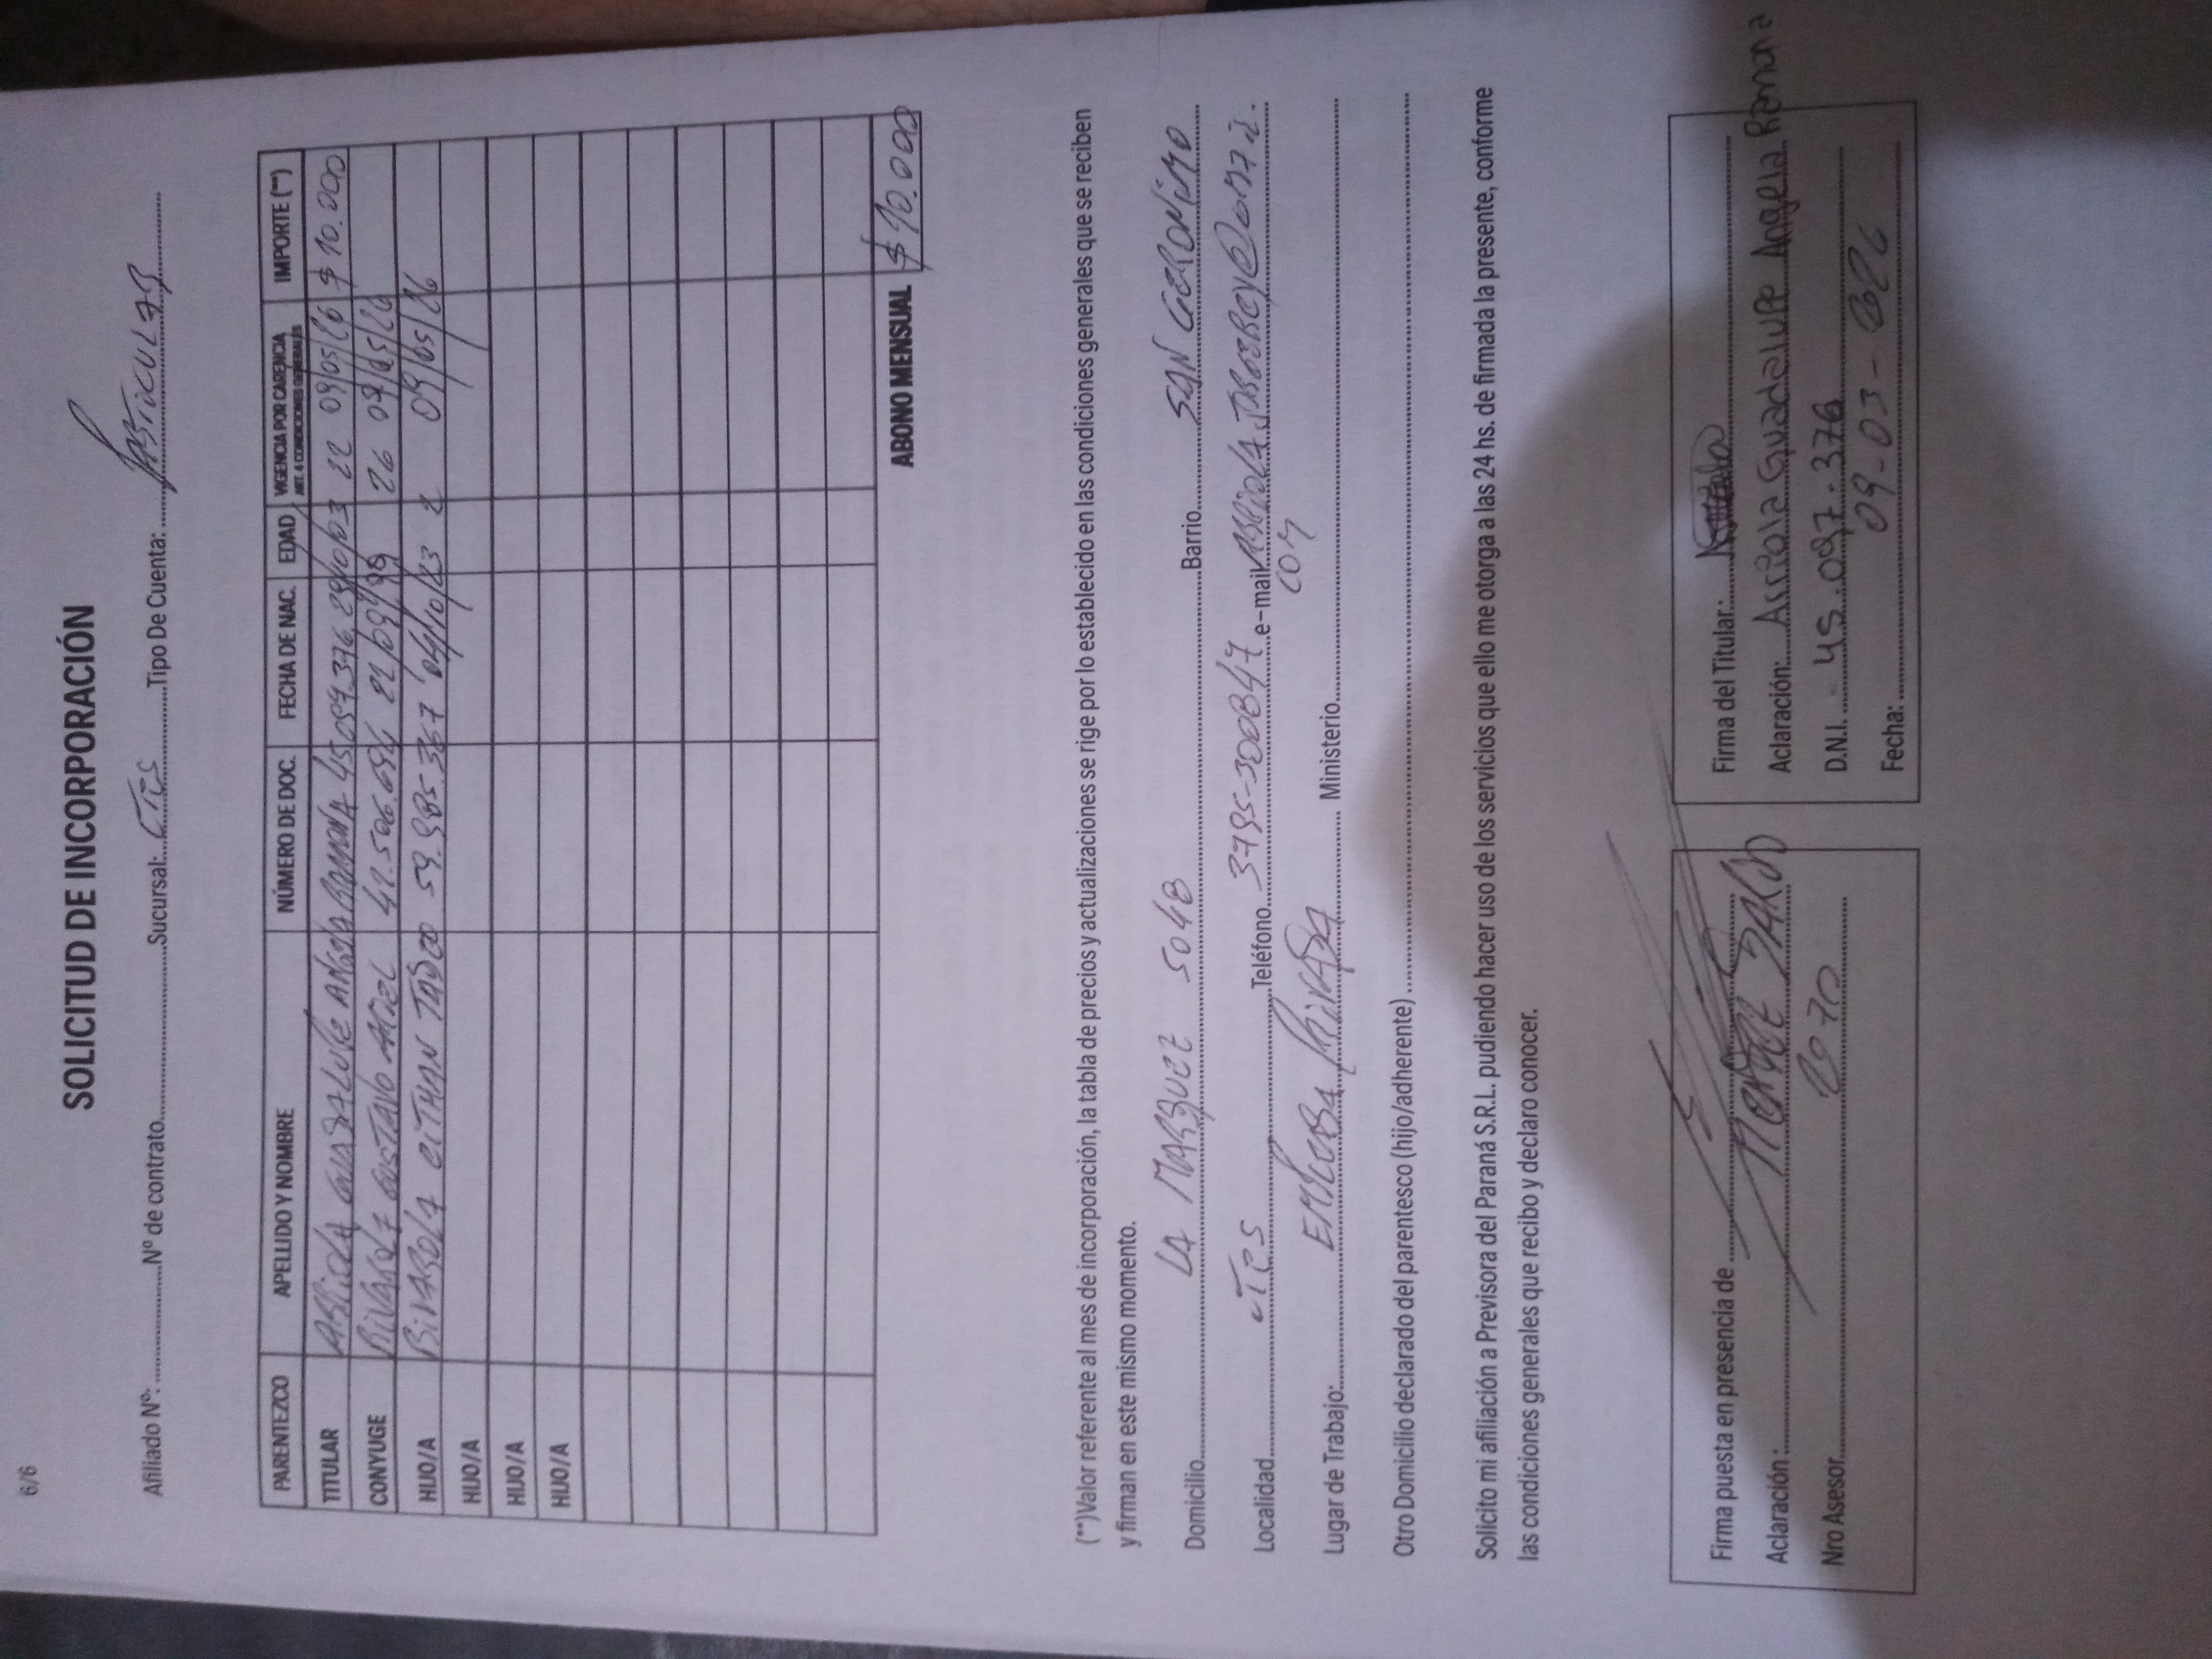 6/6
SOLICITUD DE INCORPORACIÓN
Afiliado Nº: Nº de contrato Sucursal: CTES Tipo De Cuenta: PARTICULAR
PARENTEZCO APELLIDO Y NOMBRE NÚMERO DE DOC. FECHA DE NAC. EDAD VIGENCIA POR CARENCIA ART. 4 CONDICIONES GENERALES IMPORTE (**)
TITULAR ARRIOLA GUADALUPE ANGELA RAMONA 45.097.376 29/10/03 22 09/05/26 $ 10.000
CONYUGE GUSTAVO ARIEL 42.506.696 22/09/99 26 09/05/26
HIJO/A EITHAN 59.985.367 04/10/23 2 09/05/26
HIJO/A
HIJO/A
HIJO/A
ABONO MENSUAL $ 10.000
(**)Valor referente al mes de incorporación, la tabla de precios y actualizaciones se rige por lo establecido en las condiciones generales que se reciben
y firman en este mismo momento.
Domicilio LA MARQUEZ 5048 Barrio SAN GERONIMO
Localidad CTES Teléfono 3795-300847 e-mail
COM
Lugar de Trabajo: EMPLEADA PRIVADA Ministerio
Otro Domicilio declarado del parentesco (hijo/adherente)
Solicito mi afiliación a Previsora del Paraná S.R.L. pudiendo hacer uso de los servicios que ello me otorga a las 24 hs. de firmada la presente, conforme
las condiciones generales que recibo y declaro conocer.
Firma puesta en presencia de
Aclaración:
Nro Asesor
Firma del Titular:
Aclaración: Arriola Guadalupe Angela Ramona
D.N.I. 45.097.376
Fecha: 09-03-